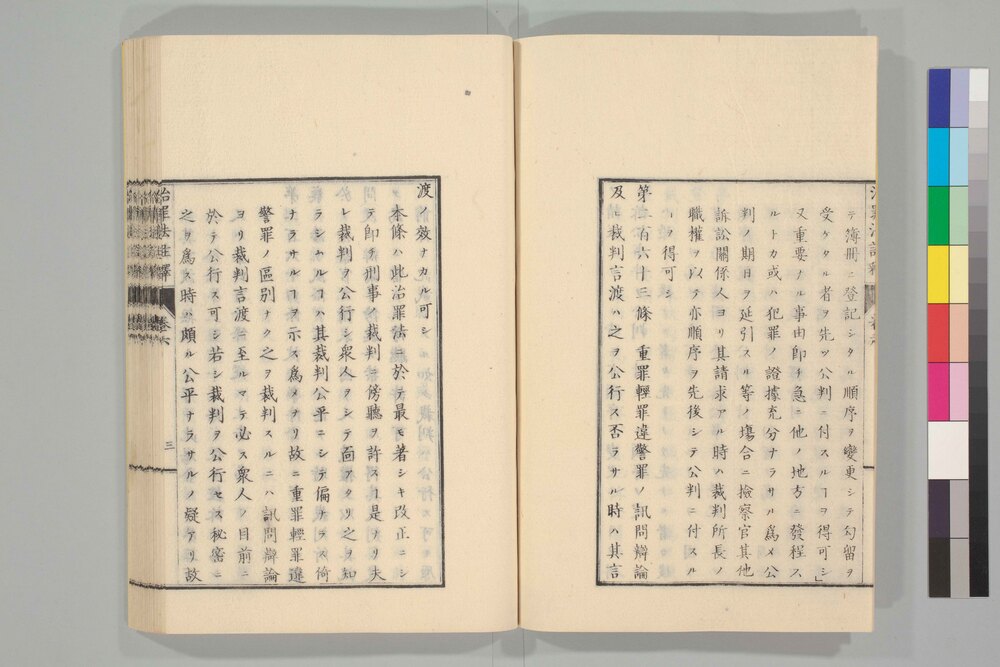 テ簿冊ニ登記シタル順序ヲ變更シテ勾留ヲ
受ケタル者ヲ先ツ公判ニ付スルコヲ得可シ」
又重要ナル事由即チ急ニ他ノ地方ニ發程ス
ルトカ或ハ犯罪ノ證據充分ナラサル爲メ公
判ノ期日ヲ延引スル等ノ塲合ニ撿察官其他
訴訟關係人ヨリ其請求アル時ハ裁判所長ノ
職權ヲ以テ亦順序ヲ先後シテ公判ニ付スル
コヲ得可シ
第二百六十三條 重罪輕罪違警罪ノ訊問辯論
及ヒ裁判言渡ハ之ヲ公行ス否ラサル時ハ其言
渡ノ效ナカル可シ
本條ハ此治罪法ニ於テ最モ著シキ改正ニシ
テ即チ刑事ノ裁判ニ傍聽ヲ許スコ是ナリ夫
レ裁判ヲ公行シ衆人ヲシテ面アタリ之ヲ知
ラシムルコハ其裁判公平ニシテ偏ナラス倚
ナラサルコヲ示ス爲メナリ故ニ重罪輕罪違
警罪ノ區別ナク之ヲ裁判スルニハ訊問辯論
ヨリ裁判言渡ニ至ルマテ必ス衆人ノ目前ニ
於テ公行ス可シ若シ裁判ヲ公行セス秘密ニ
之ヲ爲ス時ハ頗ル公平ナラサルノ疑アリ故
治罪法註釋 卷六
三